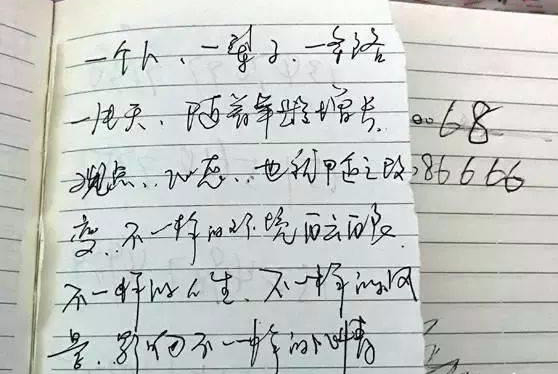 一个人、一辈子、一条路
一片天、随着年龄增长
观点、心态、也会随之改
变、不一样的环境
不一样的人生、不一样的风
景、影响不一样的心情
68
86666